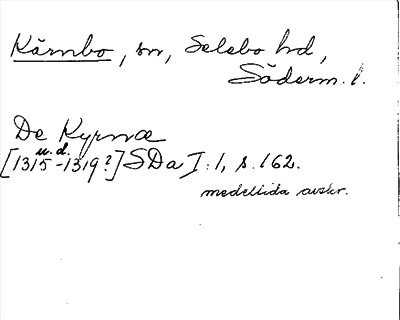 Kärnbo, sn, Selebo hd,
Söderm. l.
De Kyrnæ
u. d.
[1315-1319?] SDa I:1, s. 162.
medeltida avskr.